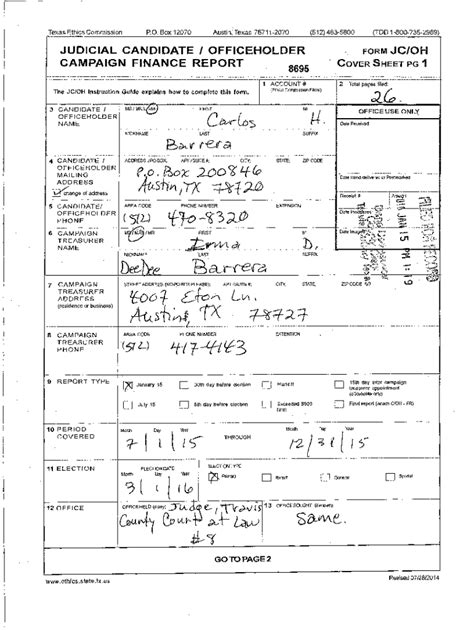 Texas Ethics Commission P.O. Box 12070 Austin, Texas 78711-2070 (512) 463-5800 (TDD 1-800-735-2989)
JUDICIAL CANDIDATE / OFFICEHOLDER CAMPAIGN FINANCE REPORT
FORM JC/OH
COVER SHEET PG 1
8695
The JC/OH Instruction Guide explains how to complete this form.
1 ACCOUNT #
2 Total pages filed:
26
3 CANDIDATE / OFFICEHOLDER NAME
FIRST MI
Carlos H.
NICKNAME LAST SUFFIX
Barrera
OFFICE USE ONLY
Date Received
4 CANDIDATE / OFFICEHOLDER MAILING ADDRESS
change of address
CITY; STATE; ZIP CODE
P.O. Box 200846
Austin, TX 78720
5 CANDIDATE/ OFFICEHOLDER PHONE
AREA CODE PHONE NUMBER EXTENSION
(512) 470-8320
Receipt #
2016 JAN 15 PM 1:19
6 CAMPAIGN TREASURER NAME
FIRST MI
Irma D.
NICKNAME LAST SUFFIX
DeeDee Barrera
7 CAMPAIGN TREASURER ADDRESS
(residence or business)
CITY; STATE; ZIP CODE
4007 Eton Ln.
Austin, TX 78727
8 CAMPAIGN TREASURER PHONE
AREA CODE PHONE NUMBER EXTENSION
(512) 417-4143
9 REPORT TYPE
January 15 30th day before election Runoff 15th day after campaign treasurer appointment (officeholder only)
July 15 8th day before election Exceeded $500 limit Final report (Attach C/OH - FR)
10 PERIOD COVERED
Month Day Year THROUGH Month Day Year
7 / 1 / 15 12 / 31 / 15
11 ELECTION
ELECTION DATE
Month Day Year
3 / 1 / 16
ELECTION TYPE
Primary Runoff General Special
12 OFFICE
OFFICE HELD (if any)
Judge, Travis
County Court at Law
#8
13 OFFICE SOUGHT (if known)
Same.
GO TO PAGE 2
www.ethics.state.tx.us Revised 07/28/2014